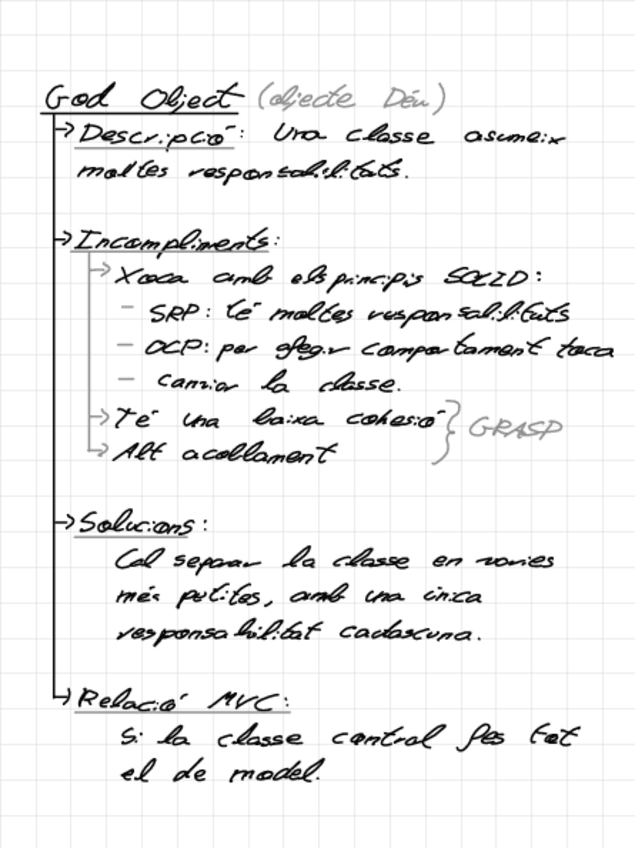 God Object (objecte Déu)
→ Descripció: Una classe asumeix
moltes responsabilitats.
→ Incompliments:
→ Xoca amb els principis SOLID:
- SRP: té moltes responsabilitats
- OCP: per afegir comportament toca
- canviar la classe.
→ Té una baixa cohesió } GRASP
→ Alt acoblament
→ Solucions:
Cal separar la classe en varies
més petites, amb una única
responsabilitat cadascuna.
→ Relació MVC:
Si la classe control fes tot
el de model.